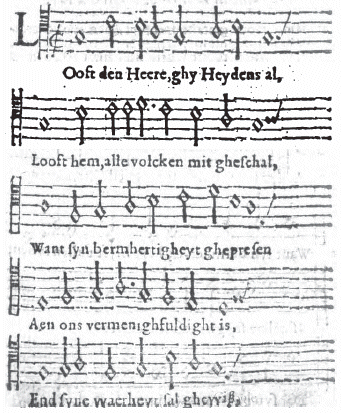 L
Ooft den Heere, ghy Heydens al,
Looft hem, alle volcken mit gheſchal,
Want ſyn bermhertigheyt ghepreſen
Aen ons vermenighfuldight is,
End ſyne waerheyt ſal ghewiß,